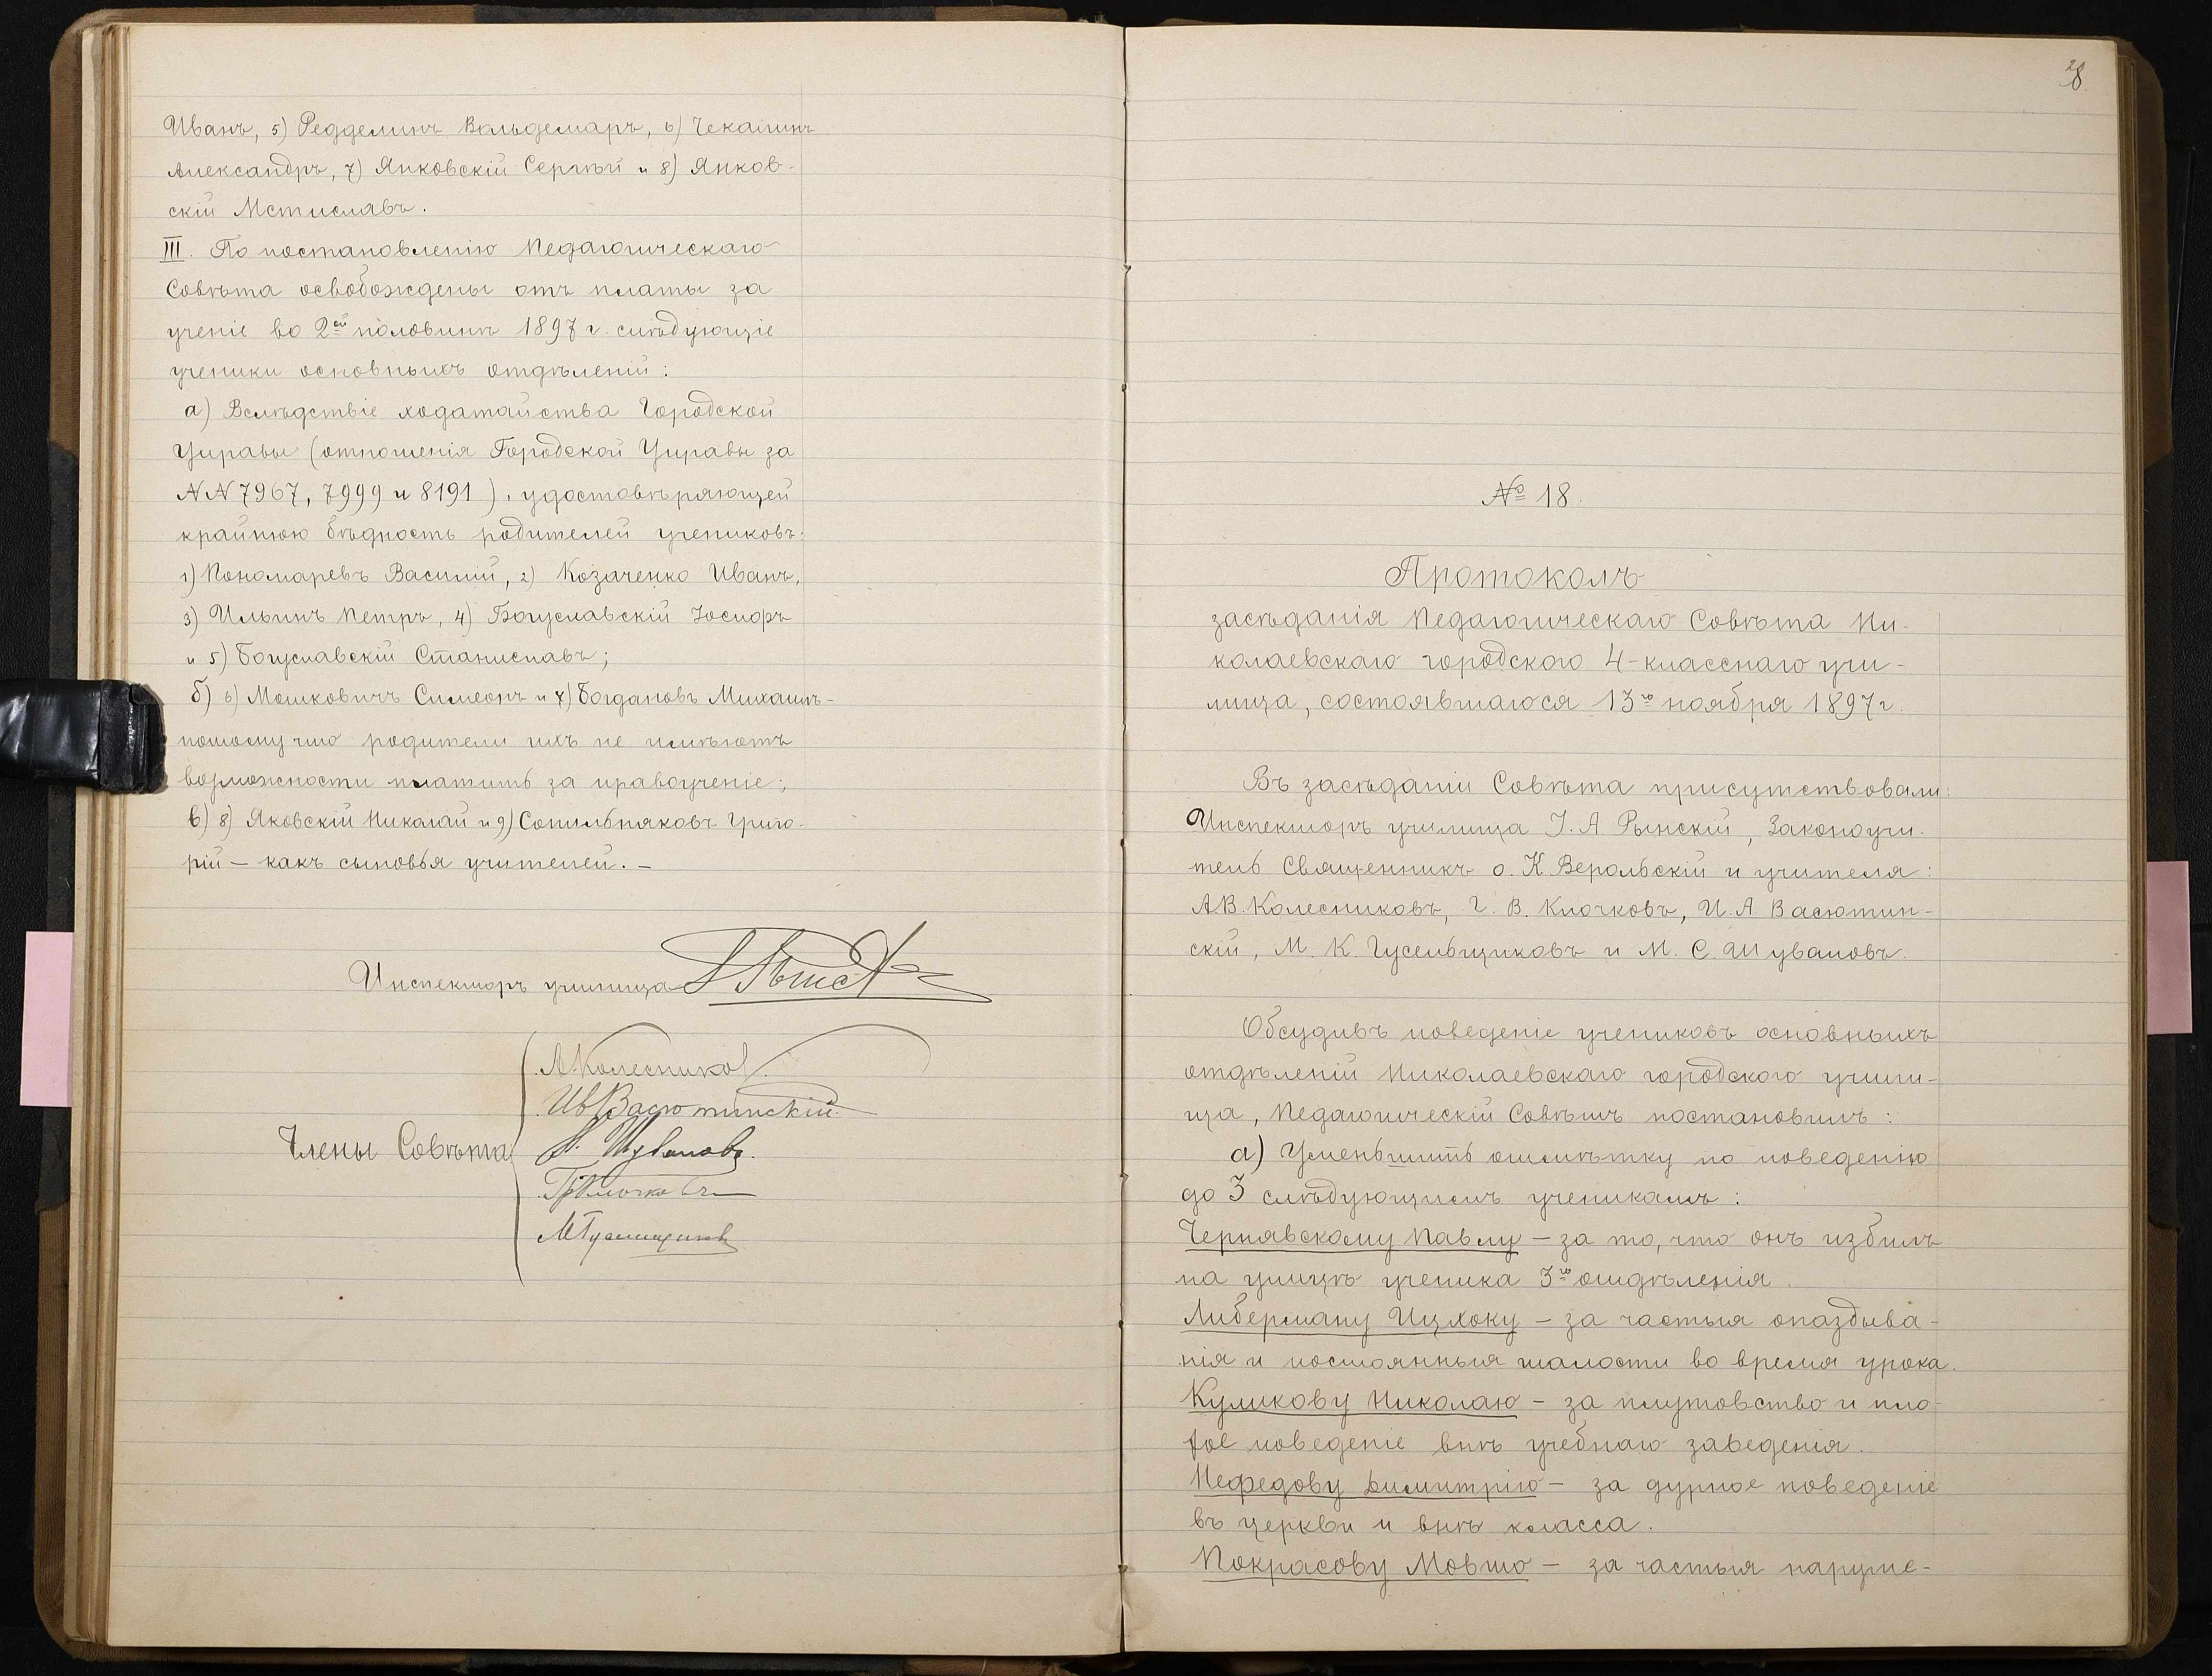 Иванъ, 5) Редделинъ Вольдемаръ, 6) Чекалинъ
Александръ, 7) Янковскій Сергѣй и 8) Янков-
скій Мстиславъ.
III. По постановленію Педагогическаго
Совѣта освобождены отъ платы за
ученіе во 2ой половинѣ 1897 г. слѣдующіе
ученики основныхъ отдѣленій:
а) Вслѣдствіе ходатайства Городской
Управы (отношенія Городской Управы за
№№ 7967, 7999 и 8191), удостовѣряющей
крайнюю бѣдность родителей учениковъ:
1) Пономаревъ Василій, 2) Козаченко Иванъ,
3) Ильинъ Петръ, 4) Богуславскій Іосифъ
и 5) Богуславскій Станиславъ;
б) 6) Мошковичъ Симеонъ и 7) Богдановъ Михаилъ-
потому что родители ихъ не имѣютъ
возможности платить за правоученіе;
в) 8) Яковскій Николай и 9) Сопильняковъ Григо-
рій — какъ сыновья учителей. —
Инспекторъ училища
А. Колесников
Ив Васютинскій
Члены Совѣта
М. Шуваловъ.
Гр Клочковъ
М Гусельщиков
28
№ 18.
Протоколъ
засѣданія Педагогическаго Совѣта Ни-
колаевскаго городского 4-класснаго учи-
лища, состоявшагося 13го ноября 1897 г.
Въ засѣданіи Совѣта присутствовали:
Инспекторъ училища І. А. Рынскій, Законоучи-
тель Священникъ о. К Верольскій и учителя:
А.В. Колесниковъ, Г. В. Клочковъ, И. А. Васютин-
скій, М. К. Гусельщиковъ и М. С. Шуваловъ.
Обсудивъ поведеніе учениковъ основныхъ
отдѣленій Николаевскаго городского учили-
ща, Педагогическій Совѣтъ постановилъ:
а) Уменьшить отмѣтку по поведенію
до 3 слѣдующимъ ученикамъ:
Чернявскому Павлу — за то, что онъ избилъ
на улицѣ ученика 3го отдѣленія.
Либерману Ицхоку — за частыя опаздыва-
нія и постоянныя шалости во время урока.
Куликову Николаю — за плутовство и пло-
хое поведеніе внѣ учебнаго заведенія.
Нефедову Димитрію — за дурное поведеніе
въ церкви и внѣ класса.
Покрасову Мовшо — за частыя наруше-